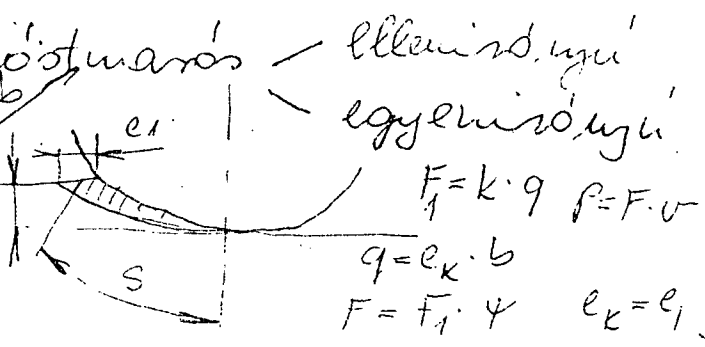 ellenirányú
egyenirányú
b
e1
F₁ = k · q P = F · v
q = e_k · b
S
F = F₁ · ψ e_k = e₁